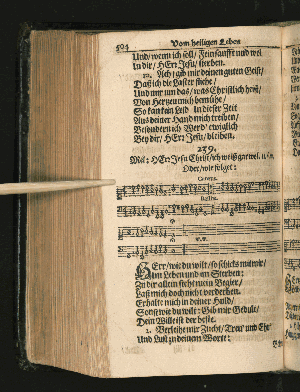 504 Vom heiligen Leben
Und/ wenn ich soll/ fein sanfft und wol
In dir/ HErr Jesu/ sterben.
12. Ach/ gib mir deinen guten Geist/
Daß ich die Laster fliehe/
Und nur um das/ was Christlich heist/
Von Hertzen mich bemühe/
So kan kein Leid in dieser Zeit
Aus deiner Hand mich treiben/
Besondern ich Werd' ewiglich
Bey dir/ HErr Jesu/ bleiben.
239.
Mel: HErr Jesu Christ/ ich weiß gar wol. u/s.
Oder/ wie folget:
Cantus.
Bassus.
HErr/ wie du wilt/ so schicks mit mir/
Im Leben und im Sterben:
Zu dir allein steht mein Begier/
Laß mich doch nicht verderben.
Erhalte mich in deiner Huld/
Sonst wie du wilt: Gib mir Gedult/
Dein Will ist der beste.
2. Verleihe mir Zucht/ Treu' und Ehr
Und Lust zu deinem Worte: